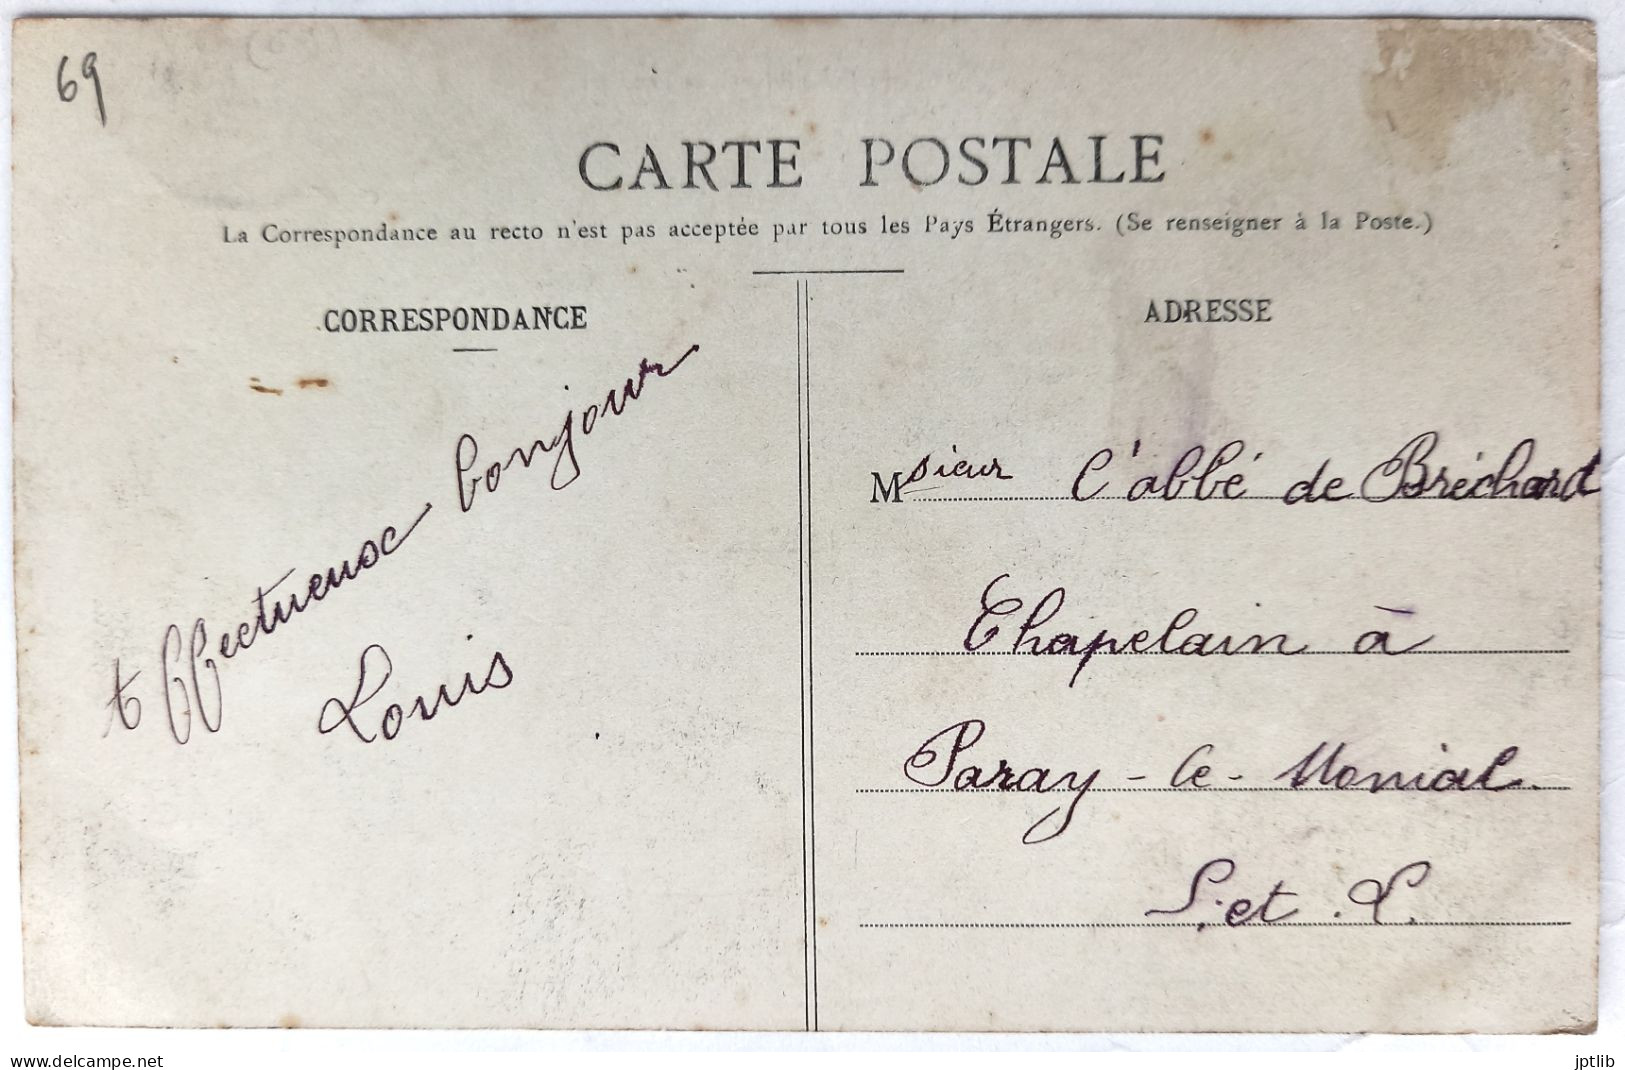 69
CARTE POSTALE
La Correspondance au recto n'est pas acceptée par tous les Pays Étrangers. (Se renseigner à la Poste.)
CORRESPONDANCE
bonjour
Louis
ADRESSE
Msieur l'abbé de Bréchard
Chapelain à
Paray-le-Monial.
S. et L.
www.delcampe.net
jptlib